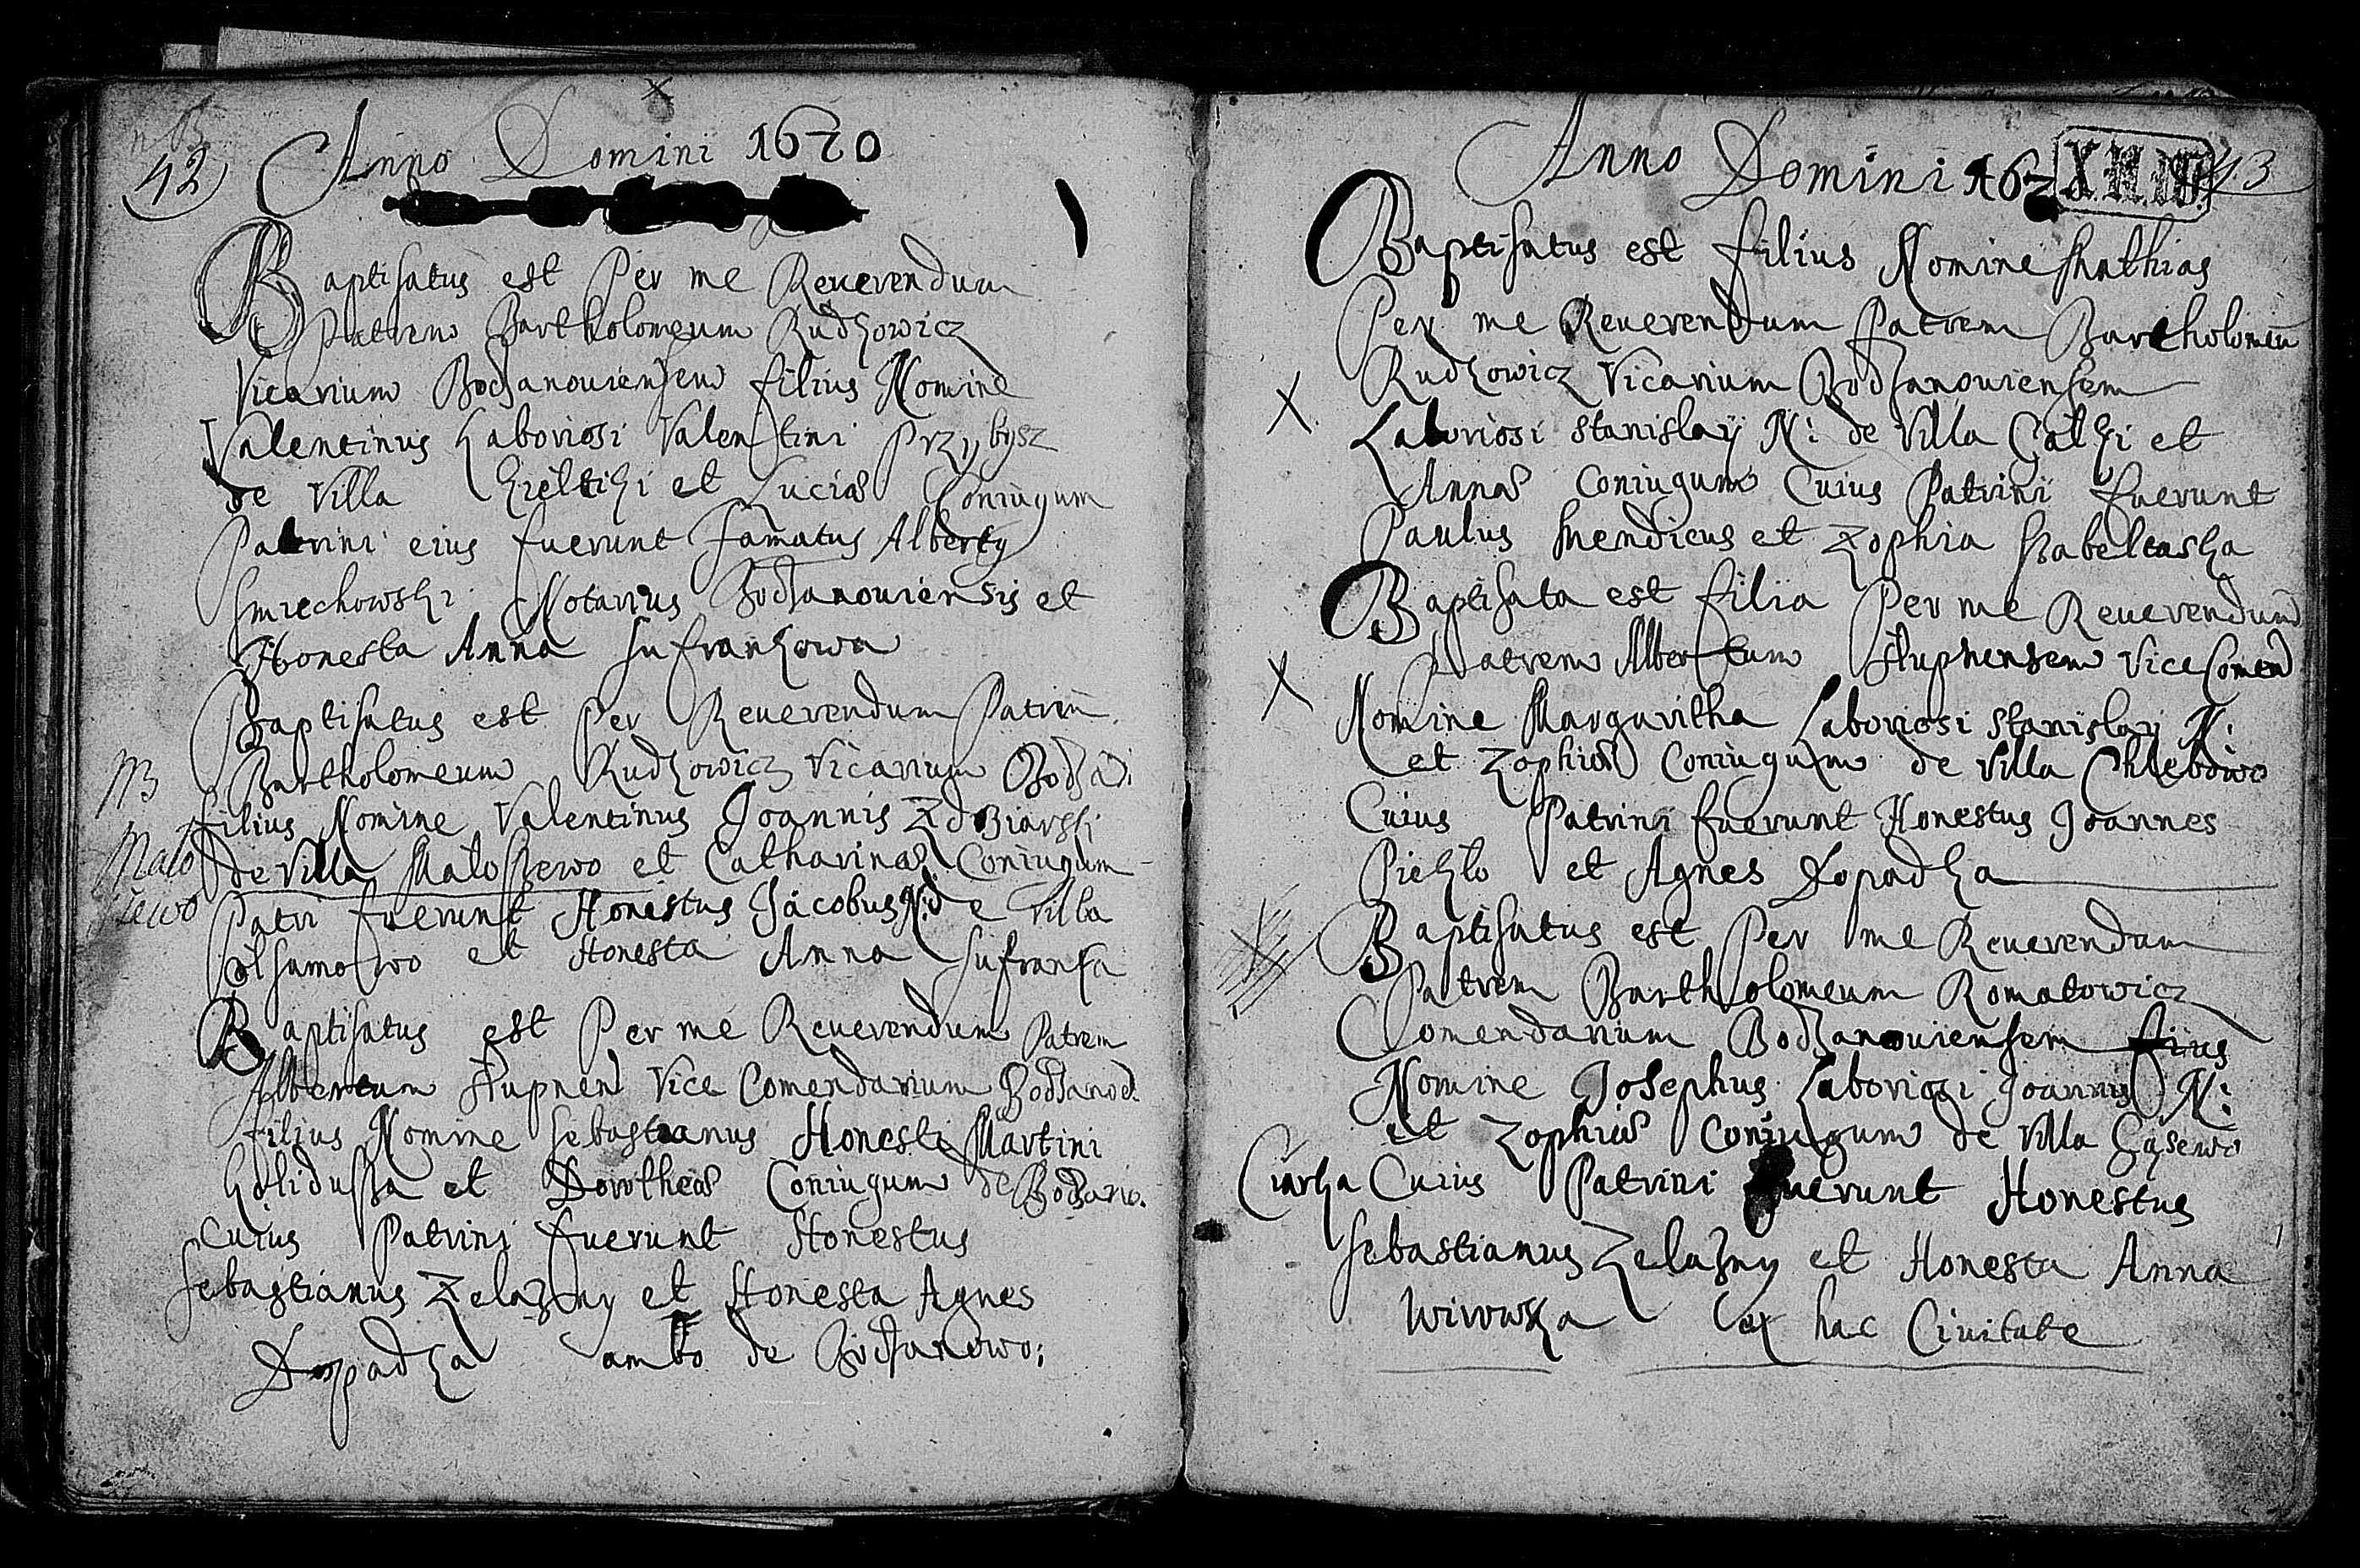 42
Anno Domini 1670
Baptisatus est Per me Reuerendum
Patrem Bartholomeum Rudkowicz
Vicarium Bodzanouiensem filius Nomine
Valentinus Laboriosi Valentini Przybysz
de Villa et Luciae Coniugum
Patrini eius fuerunt famatus Alberty
Smiechowski Notarius Bodzanouiensis et
Honesta Anna Sufrankowa
Baptisatus est Per Reuerendum Patrem
Bartholomeum Rudkowicz Vicarium
filius Nomine Valentinus Joannis
de Villa et Catharinae Coniugum
Patri fuerunt Honestus Jacobus N: de Villa
et Honesta Anna
Baptisatus est Per me Reuerendum Patrem
Albertum Vice Comendarium
filius Nomine Sebastianus Honesti Martini
et Dorotheae Coniugum de
Cuius Patrini fuerunt Honestus
Sebastianus Zelazny et Honesta Agnes
Dopadka ambo de Bodzanowo;
Anno Domini 167
43
Baptisatus est filius Nomine Mathias
Per me Reuerendum Patrem Bartholomeū
Rudkowicz Vicarium Bodzanouiensem
Laboriosi Stanislay N: de Villa et
Annae Coniugum Cuius Patrini fuerunt
Paulus Mendicus et Zophia
Baptisata est filia Per me Reuerendum
Patrem Albertum Vice Comend
Nomine Margaritha Laboriosi Stanislay N:
et Zophiae Coniugum de Villa Chlebowo
Cuius Patrini fuerunt Honestus Joannes
et Agnes Dopadka
Baptisatus est Per me Reuerendum
Patrem Bartholomeum Romatowicz
Comendarium Bodzanouiensem
Nomine Josephus Laboriosi Joannis N:
et Zophiae Coniugum de Villa
Cuius Patrini fuerunt Honestus
Sebastianus Zelazny et Honesta Anna
ex hac Ciuitate